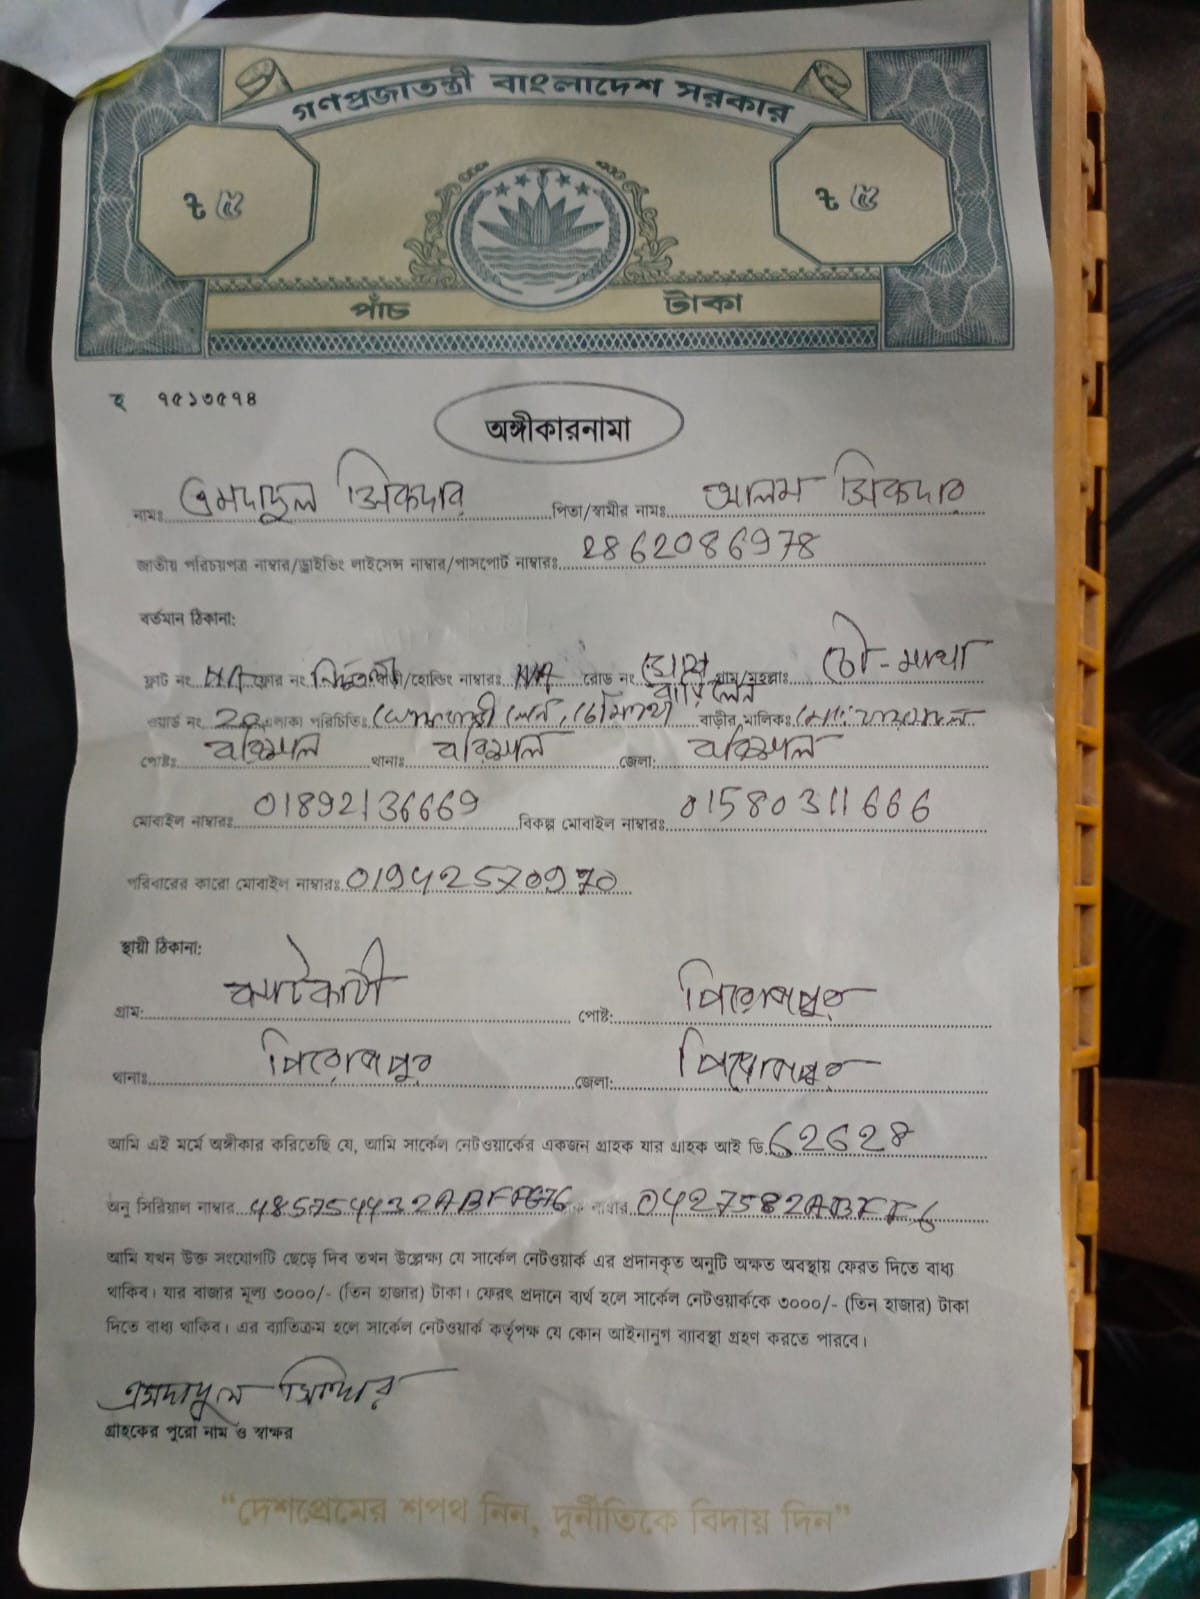 গণপ্রজাতন্ত্রী বাংলাদেশ সরকার
৳ ৫ ৳ ৫
পাঁচ টাকা
হ ৭৫১৩৫৭৪
অঙ্গীকারনামা
নামঃ এমদাদুল সিকদার পিতা/স্বামীর নামঃ আলম সিকদার
জাতীয় পরিচয়পত্র নাম্বার/ড্রাইভিং লাইসেন্স নাম্বার/পাসপোর্ট নাম্বারঃ 2862086978
বর্তমান ঠিকানা:
ফ্লাট নং NA ফ্লোর নং /হোল্ডিং নাম্বারঃ N/A রোড নং গ্রাম/মহল্লাঃ চৌ-মাথা
ওয়ার্ড নং 20 এলাকা পরিচিতিঃ লেন, চৌমাথা বাড়ীর মালিকঃ মোঃ
পোষ্টঃ বরিশাল থানাঃ বরিশাল জেলা: বরিশাল
মোবাইল নাম্বারঃ 01892136669 বিকল্প মোবাইল নাম্বারঃ 01580311666
পরিবারের কারো মোবাইল নাম্বারঃ 01942570970
স্থায়ী ঠিকানা:
গ্রাম: পোষ্ট: পিরোজপুর
থানাঃ পিরোজপুর জেলা: পিরোজপুর
আমি এই মর্মে অঙ্গীকার করিতেছি যে, আমি সার্কেল নেটওয়ার্কের একজন গ্রাহক যার গ্রাহক আই ডি. 62628
অনু সিরিয়াল নাম্বার নাম্বার 0427582ABFF6
আমি যখন উক্ত সংযোগটি ছেড়ে দিব তখন উল্লেক্ষ্য যে সার্কেল নেটওয়ার্ক এর প্রদানকৃত অনুটি অক্ষত অবস্থায় ফেরত দিতে বাধ্য
থাকিব। যার বাজার মূল্য ৩০০০/- (তিন হাজার) টাকা। ফেরৎ প্রদানে ব্যর্থ হলে সার্কেল নেটওয়ার্ককে ৩০০০/- (তিন হাজার) টাকা
দিতে বাধ্য থাকিব। এর ব্যাতিক্রম হলে সার্কেল নেটওয়ার্ক কর্তৃপক্ষ যে কোন আইনানুগ ব্যাবস্থা গ্রহণ করতে পারবে।
এমদাদুল সিকদার
গ্রাহকের পুরো নাম ও স্বাক্ষর
“দেশপ্রেমের শপথ নিন, দুর্নীতিকে বিদায় দিন”